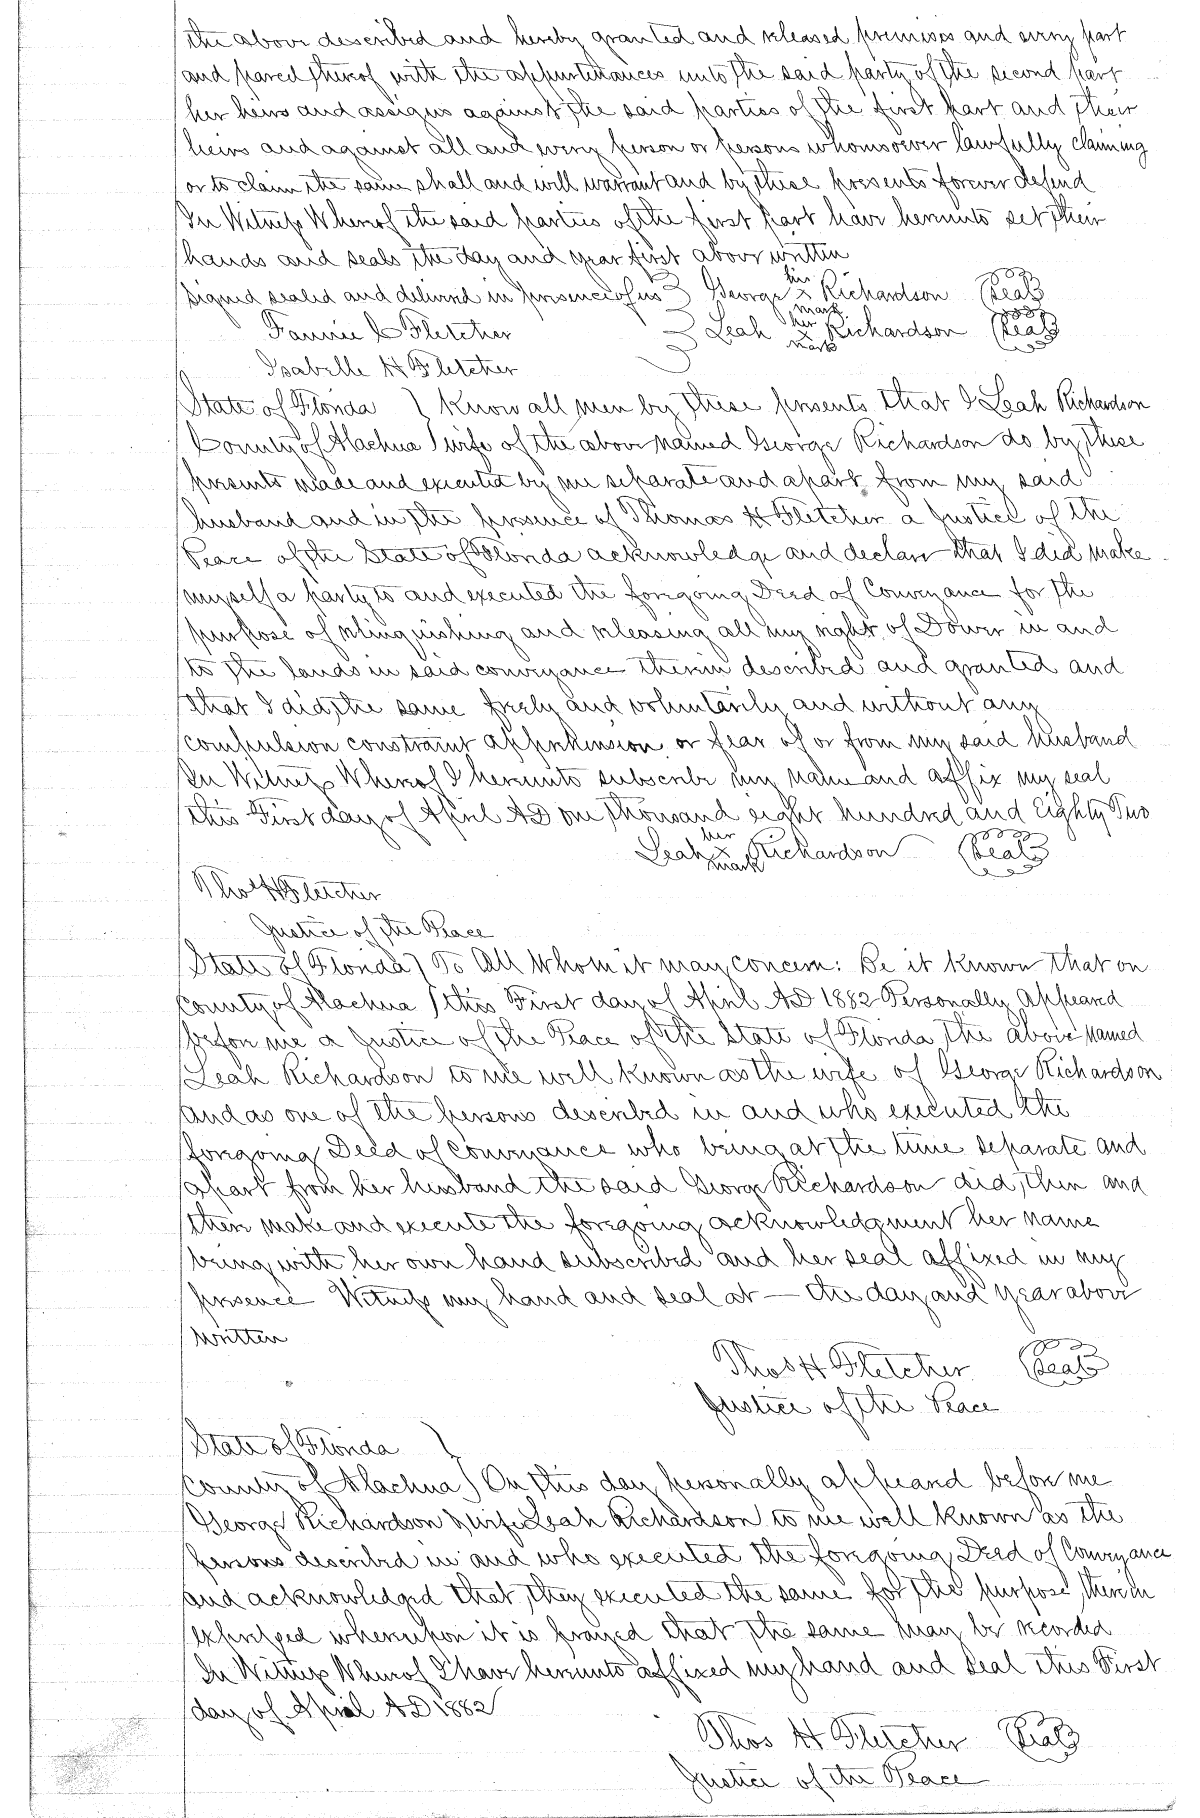 the above described and hereby granted and released premises and every part
and parcel thereof with the appurtenances unto the said party of the second part
her heirs and assigns against the said parties of the first part and their
heirs and against all and every person or persons whomsoever lawfully claiming
or to claim the same shall and will warrant and by these presents forever defend
In Witness Whereof the said parties of the first part have hereunto set their
hands and seals the day and year first above written
Signed sealed and delivered in presence of us } George his x mark Richardson (Seal)
Fannie C Fletcher } Leah her x mark Richardson (Seal)
Isabelle H Fletcher
State of Florida } Know all men by these presents that I Leah Richardson
County of Alachua } wife of the above named George Richardson do by these
presents made and executed by me separate and apart from my said
husband and in the presence of Thomas H Fletcher a Justice of the
Peace of the State of Florida acknowledge and declare that I did make
myself a party to and executed the foregoing Deed of Conveyance for the
purpose of relinquishing and releasing all my right of Dower in and
to the lands in said conveyance therein described and granted and
that I did the same freely and voluntarily and without any
compulsion constraint apprehension or fear of or from my said husband
In Witness Whereof I hereunto subscribe my name and affix my seal
this First day of April AD one thousand eight hundred and Eighty Two
Leah her x mark Richardson (Seal)
Thos H Fletcher
Justice of the Peace
State of Florida } To All Whom it may Concern: Be it Known that on
County of Alachua } this First day of April AD 1882 Personally appeared
before me a Justice of the Peace of the State of Florida the above named
Leah Richardson to me well known as the wife of George Richardson
and as one of the persons described in and who executed the
foregoing Deed of Conveyance who being at the time separate and
apart from her husband the said George Richardson did then and
there make and execute the foregoing acknowledgment her name
being with her own hand subscribed and her seal affixed in my
presence Witness my hand and seal at — the day and year above
written
Thos H Fletcher (Seal)
Justice of the Peace
State of Florida }
County of Alachua } On this day personally appeared before me
George Richardson & wife Leah Richardson to me well known as the
persons described in and who executed the foregoing Deed of Conveyance
and acknowledged that they executed the same for the purpose therein
expressed whereupon it is prayed that the same may be recorded
In Witness Whereof I have hereunto affixed my hand and seal this First
day of April AD 1882
Thos H Fletcher (Seal)
Justice of the Peace